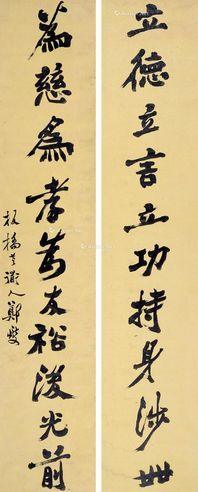 立德立言立功持身涉世
為慈為孝為友裕後光前
板橋人鄭燮